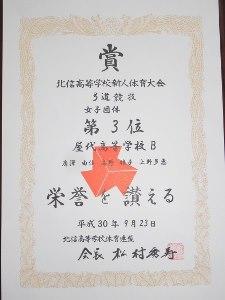 賞
北信高等学校新人体育大会
弓道競技
女子団体
第3位
屋代高等学校B
上野多恵
栄誉を讃える
平成30年9月23日
北信高等学校体育連盟
会長 松村